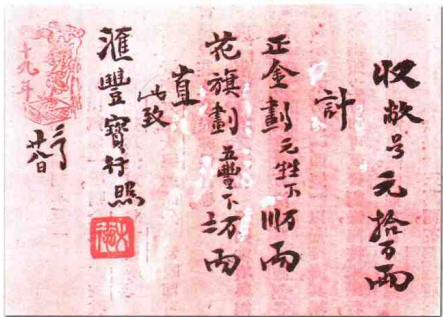 收敝号元拾万両
計
正金劃元甡下〣万両
花旗劃五豐下〧万両
直
此致
滙豐寶行照
十九年
廿八日